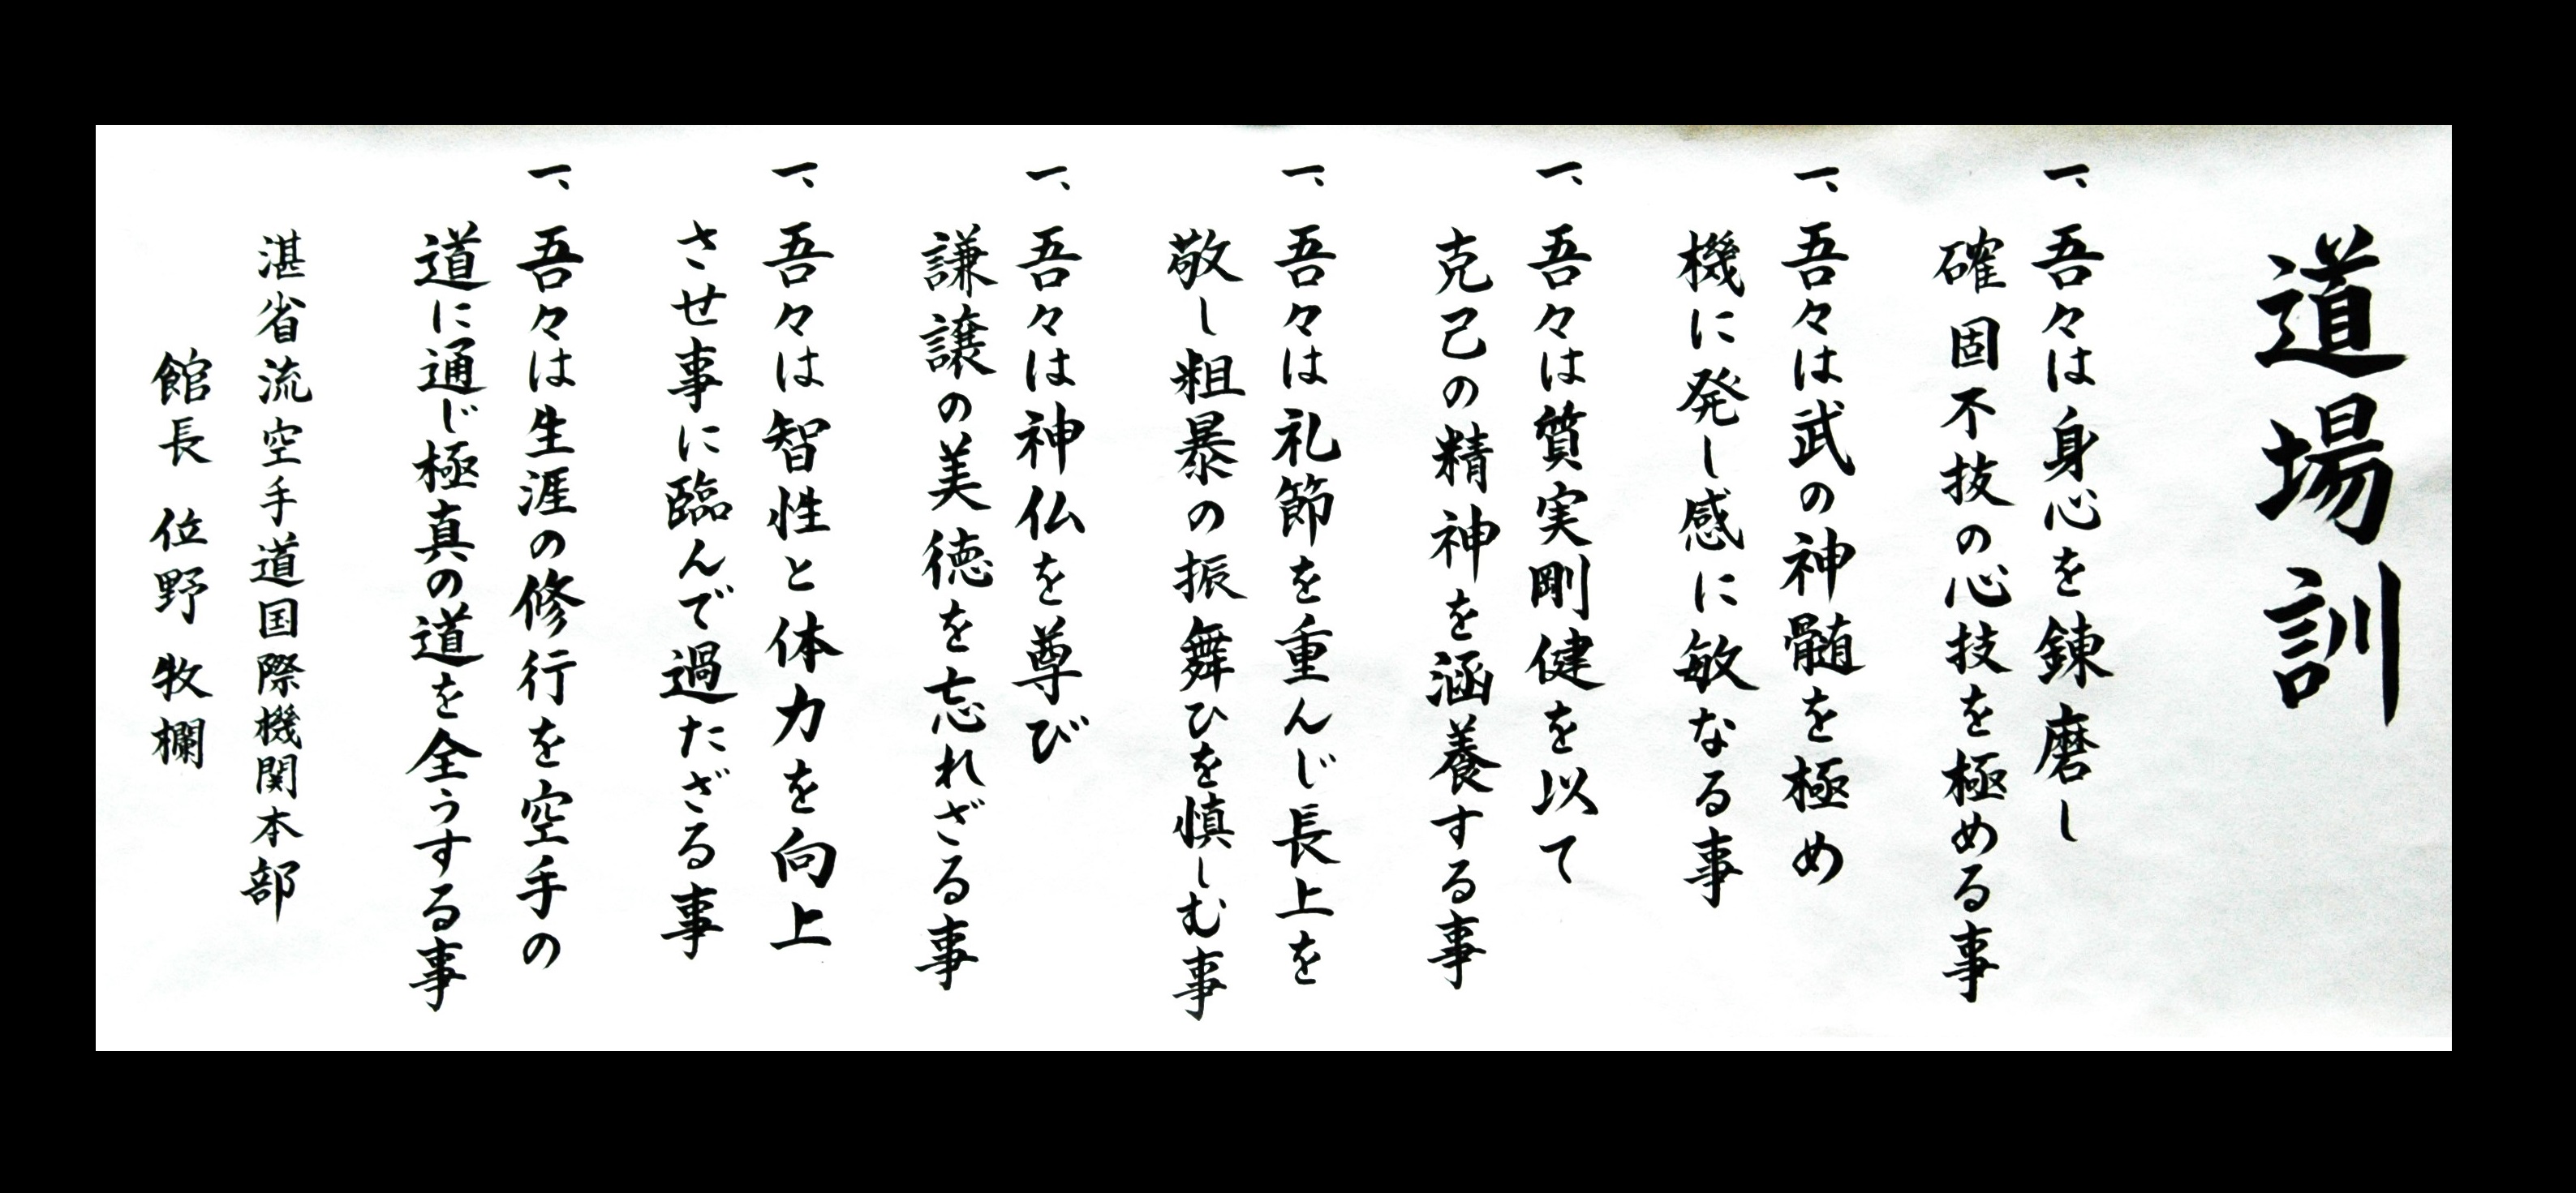 道場訓
一、吾々は身心を錬磨し
確固不技の心技を極める事
一、吾々は武の神髄を極め
機に発し感に敏なる事
一、吾々は質実剛健を以て
克己の精神を涵養する事
一、吾々は礼節を重んじ長上を
敬し粗暴の振舞ひを慎しむ事
一、吾々は神仏を尊び
謙譲の美徳を忘れざる事
一、吾々は智性と体力を向上
させ事に臨んで過たざる事
一、吾々は生涯の修行を空手の
道に通じ極真の道を全うする事
湛省流空手道国際機関本部
館長 位野牧欄